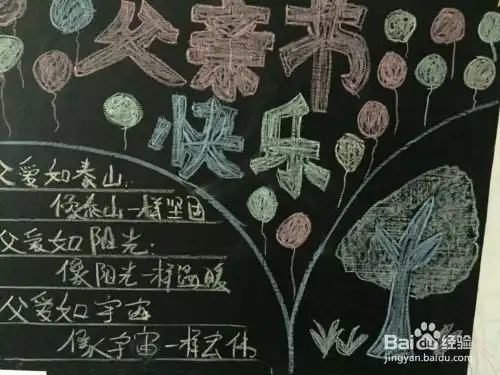 父亲节
快乐
父爱如泰山：
像泰山一样坚固
父爱如阳光：
像阳光一样温暖
父爱如宇宙
像宇宙一样宏伟
Baidu经验
jingyan.baidu.com